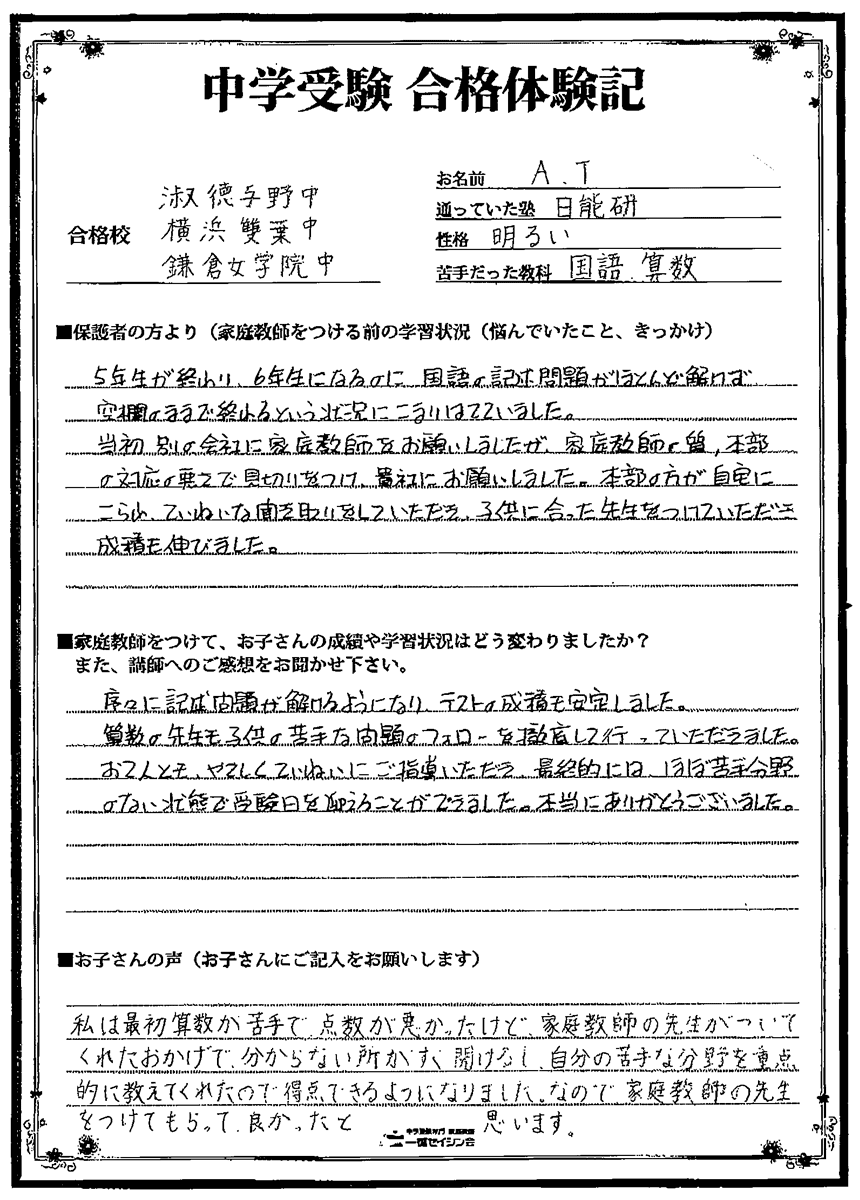 中学受験 合格体験記
合格校
淑徳与野中
横浜雙葉中
鎌倉女学院中
お名前 A.T
通っていた塾 日能研
性格 明るい
苦手だった教科 国語、算数
■保護者の方より（家庭教師をつける前の学習状況（悩んでいたこと、きっかけ）
5年生が終わり、6年生になるのに 国語の記述問題がほとんど解けず
空欄のままで終わるという状況にこまりはてていました。
当初 別の会社に家庭教師をお願いしましたが、家庭教師の質，本部
の対応の悪さで見切りをつけ、貴社にお願いしました。本部の方が自宅に
こられ、ていねいな聞き取りをしていただき、子供に合った先生をつけていただき
成積も伸びました。
■家庭教師をつけて、お子さんの成績や学習状況はどう変わりましたか？
また、講師へのご感想をお聞かせ下さい。
序々に記述問題が解けるようになり、テストの成積も安定しました。
算数の先生も子供の苦手な問題のフォローを徹底して行っていただきました。
お二人とも、やさしくていねいにご指導いただき、最終的には、ほぼ苦手分野
のない状態で受験日を迎えることができました。本当にありがとうございました。
■お子さんの声（お子さんにご記入をお願いします）
私は最初算数が苦手で、点数が悪かったけど、家庭教師の先生がついて
くれたおかげで、分からない所がすぐ聞けるし、自分の苦手な分野を重点
的に教えてくれたので得点できるようになりました。なので家庭教師の先生
をつけてもらって、良かったと 思います。
中学受験専門 家庭教師
一橋セイシン会